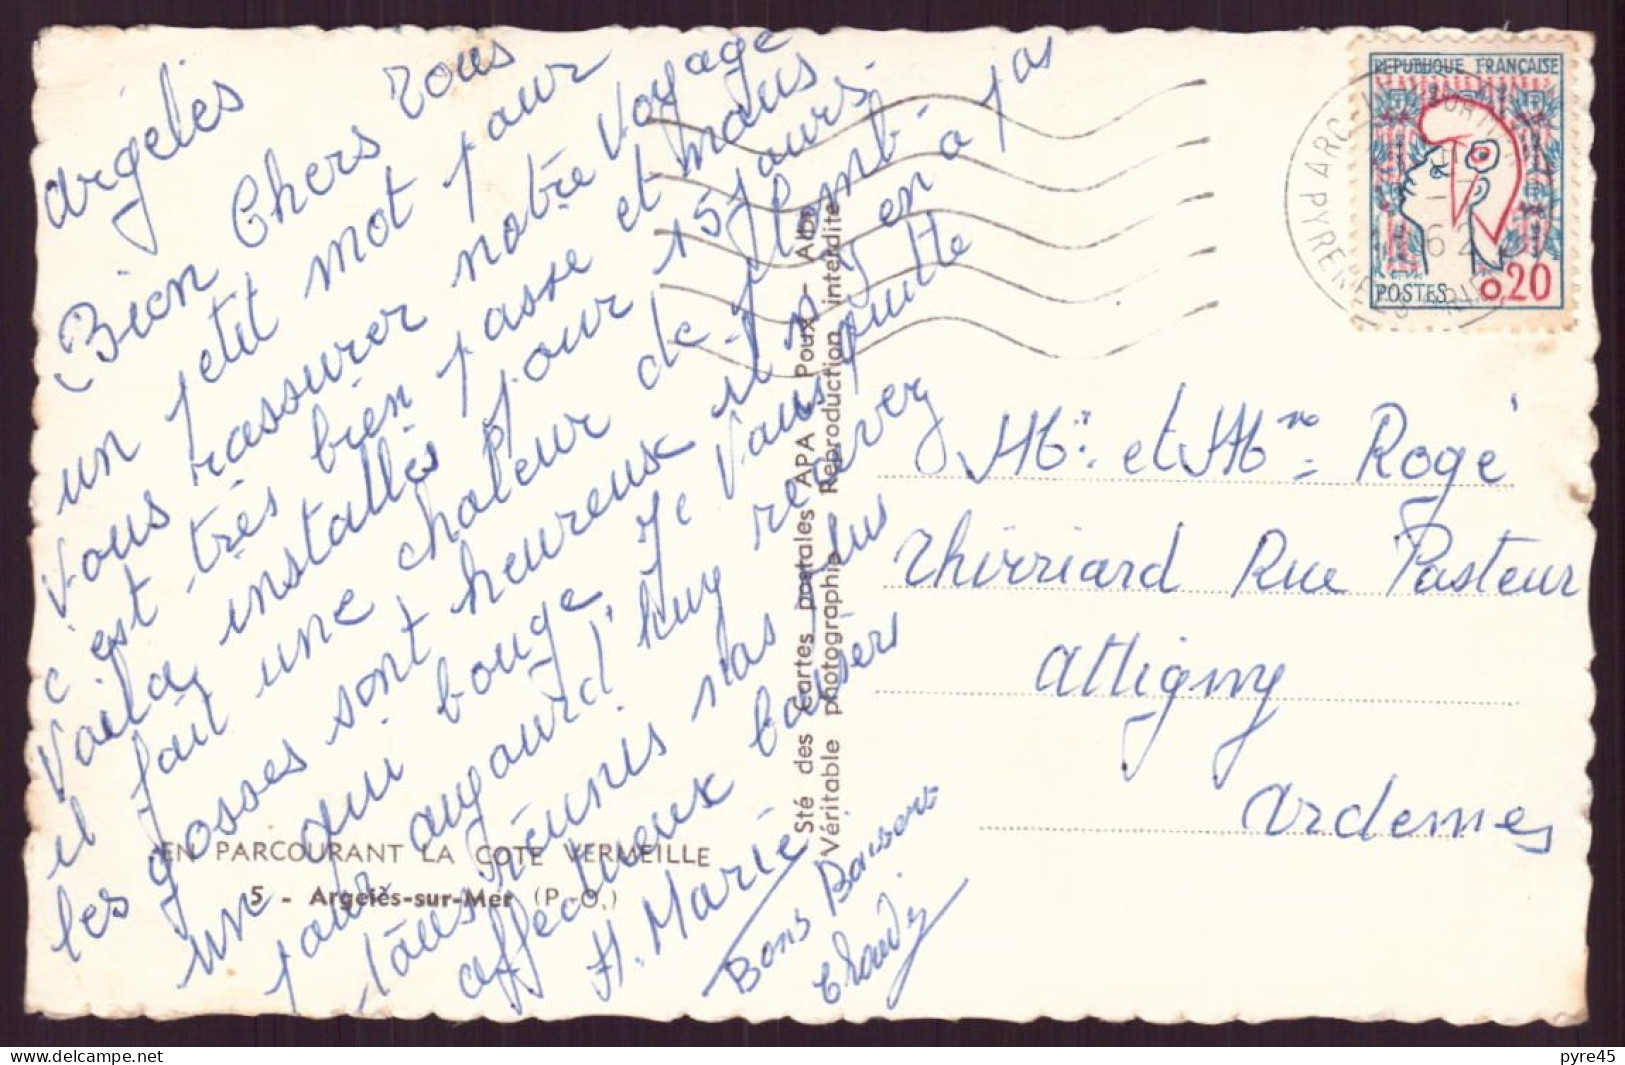 Argelès
Bien Chers Tous
un petit mot pour
vous rassurer notre voyage
c'est très bien passe et nous
voila installés pour 15 jours.
il fait une chaleur de plomb
les gosses sont heureux il n'y en à pas
un qui bouge. Je vous quitte
pour aujourd'huy recevez
tous réunis nos plus
affectueux baisers
H. Marie
Bons Baisers
Claudy
EN PARCOURANT LA COTE VERMEILLE
5 - Argelès-sur-Mer (P.-O.)
Sté des Cartes postales APA Poux - Albi
Véritable photographie - Reproduction interdite
REPUBLIQUE FRANÇAISE
POSTES 0,20
PYRENEES
62
Mr. et Mme Rogé
Thirriard Rue Pasteur
Attigny
Ardennes
pyre45